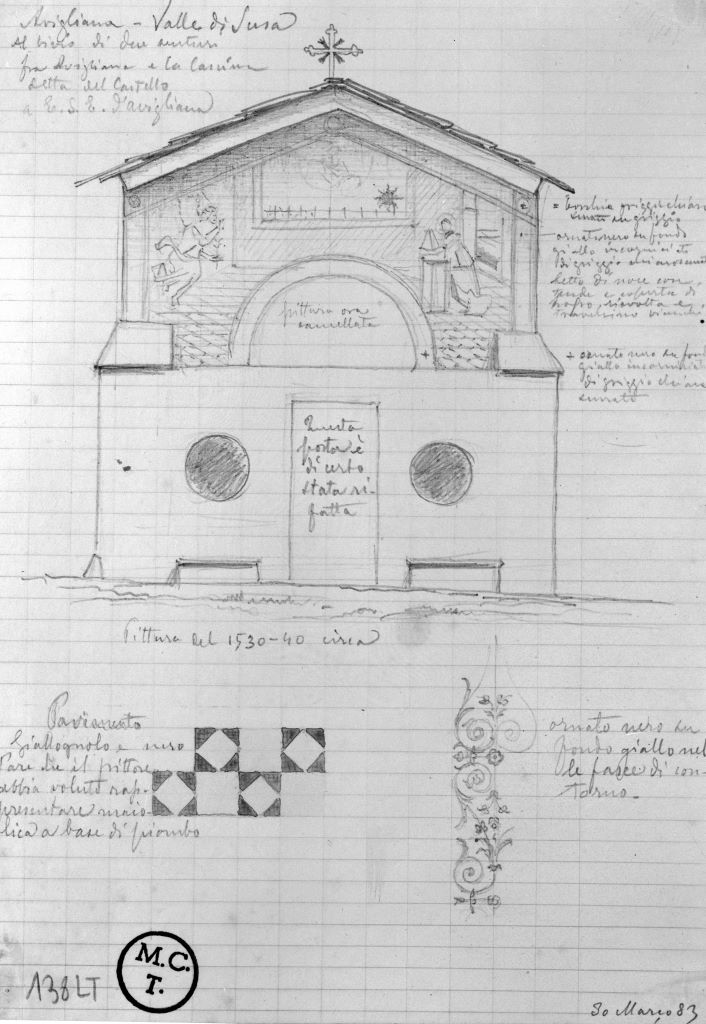 Avigliana - Valle di Susa
al bivio di due sentieri
fra Avigliana e la Cascina
detta del Castello
a E. S. E. d'Avigliana
= grigio chiaro
su grigio
ornato nero su fondo
giallo incorniciato
di grigio chiaroscurato
letto di noce con
e coperta di
+ ornato nero su fondo
giallo incorniciato
di grigio chiaro
scurato
pittura ora
cancellata
Questa
porta è
di certo
stata ri-
fatta
Pittura del 1530-40 circa
Pavimento
Giallognolo e nero
Pare che il pittore
abbia voluto rap-
presentare maio-
lica a base di piombo
ornato nero su
fondo giallo nel
le fasce di con-
torno-
138 LT
M.C.
T.
30 Marzo 83